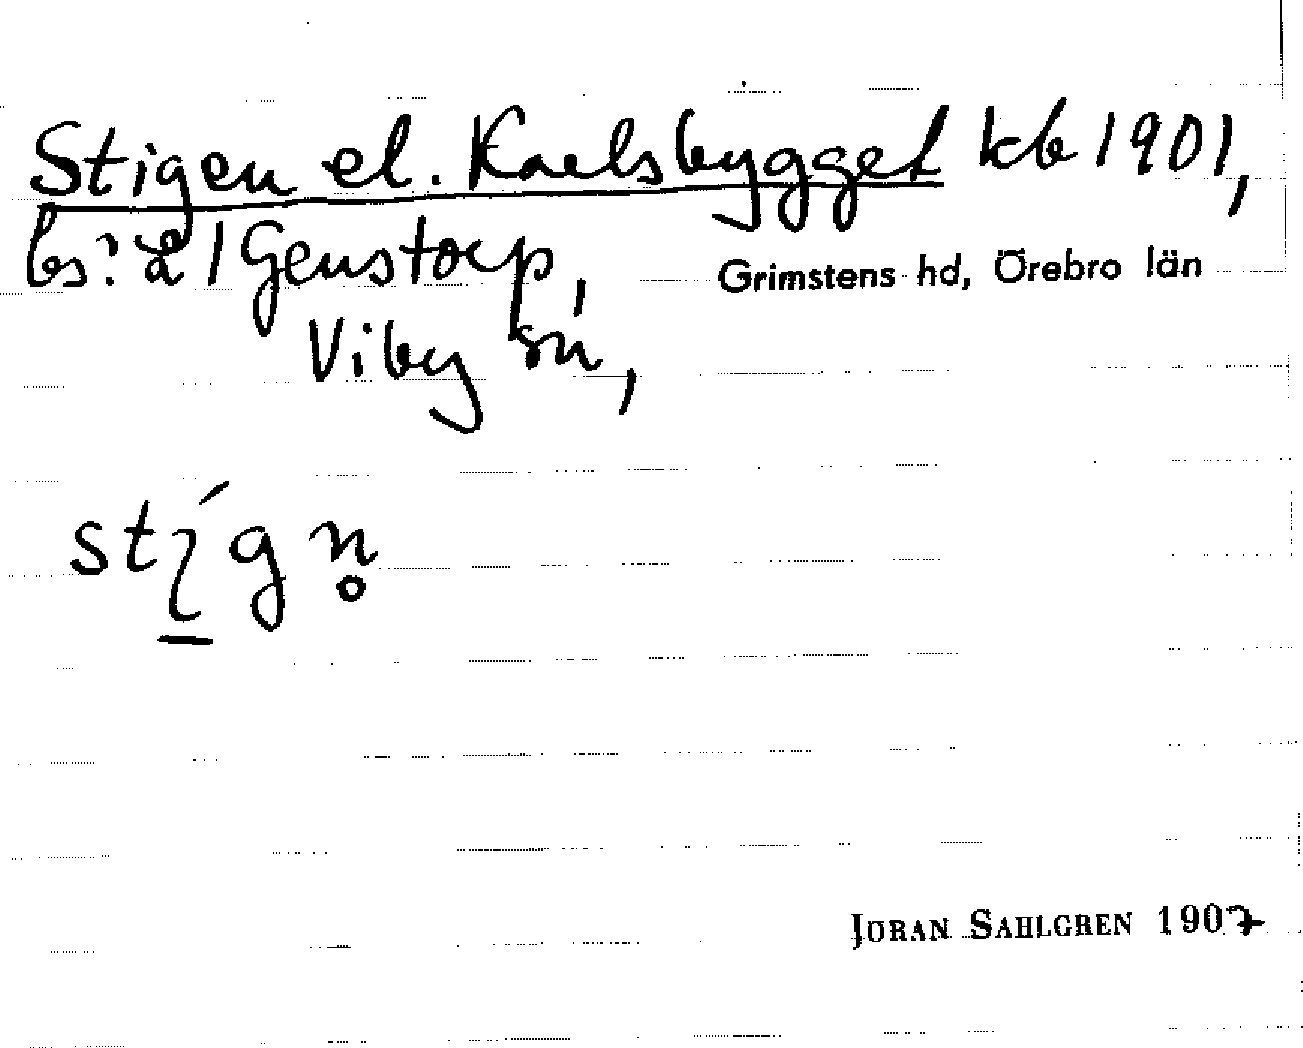 Stigen el. Karlsbygget kb 1901,
bs: å /Genstorp, Grimstens hd, Örebro län
Viby sn,
JÖRAN SAHLGREN 1907